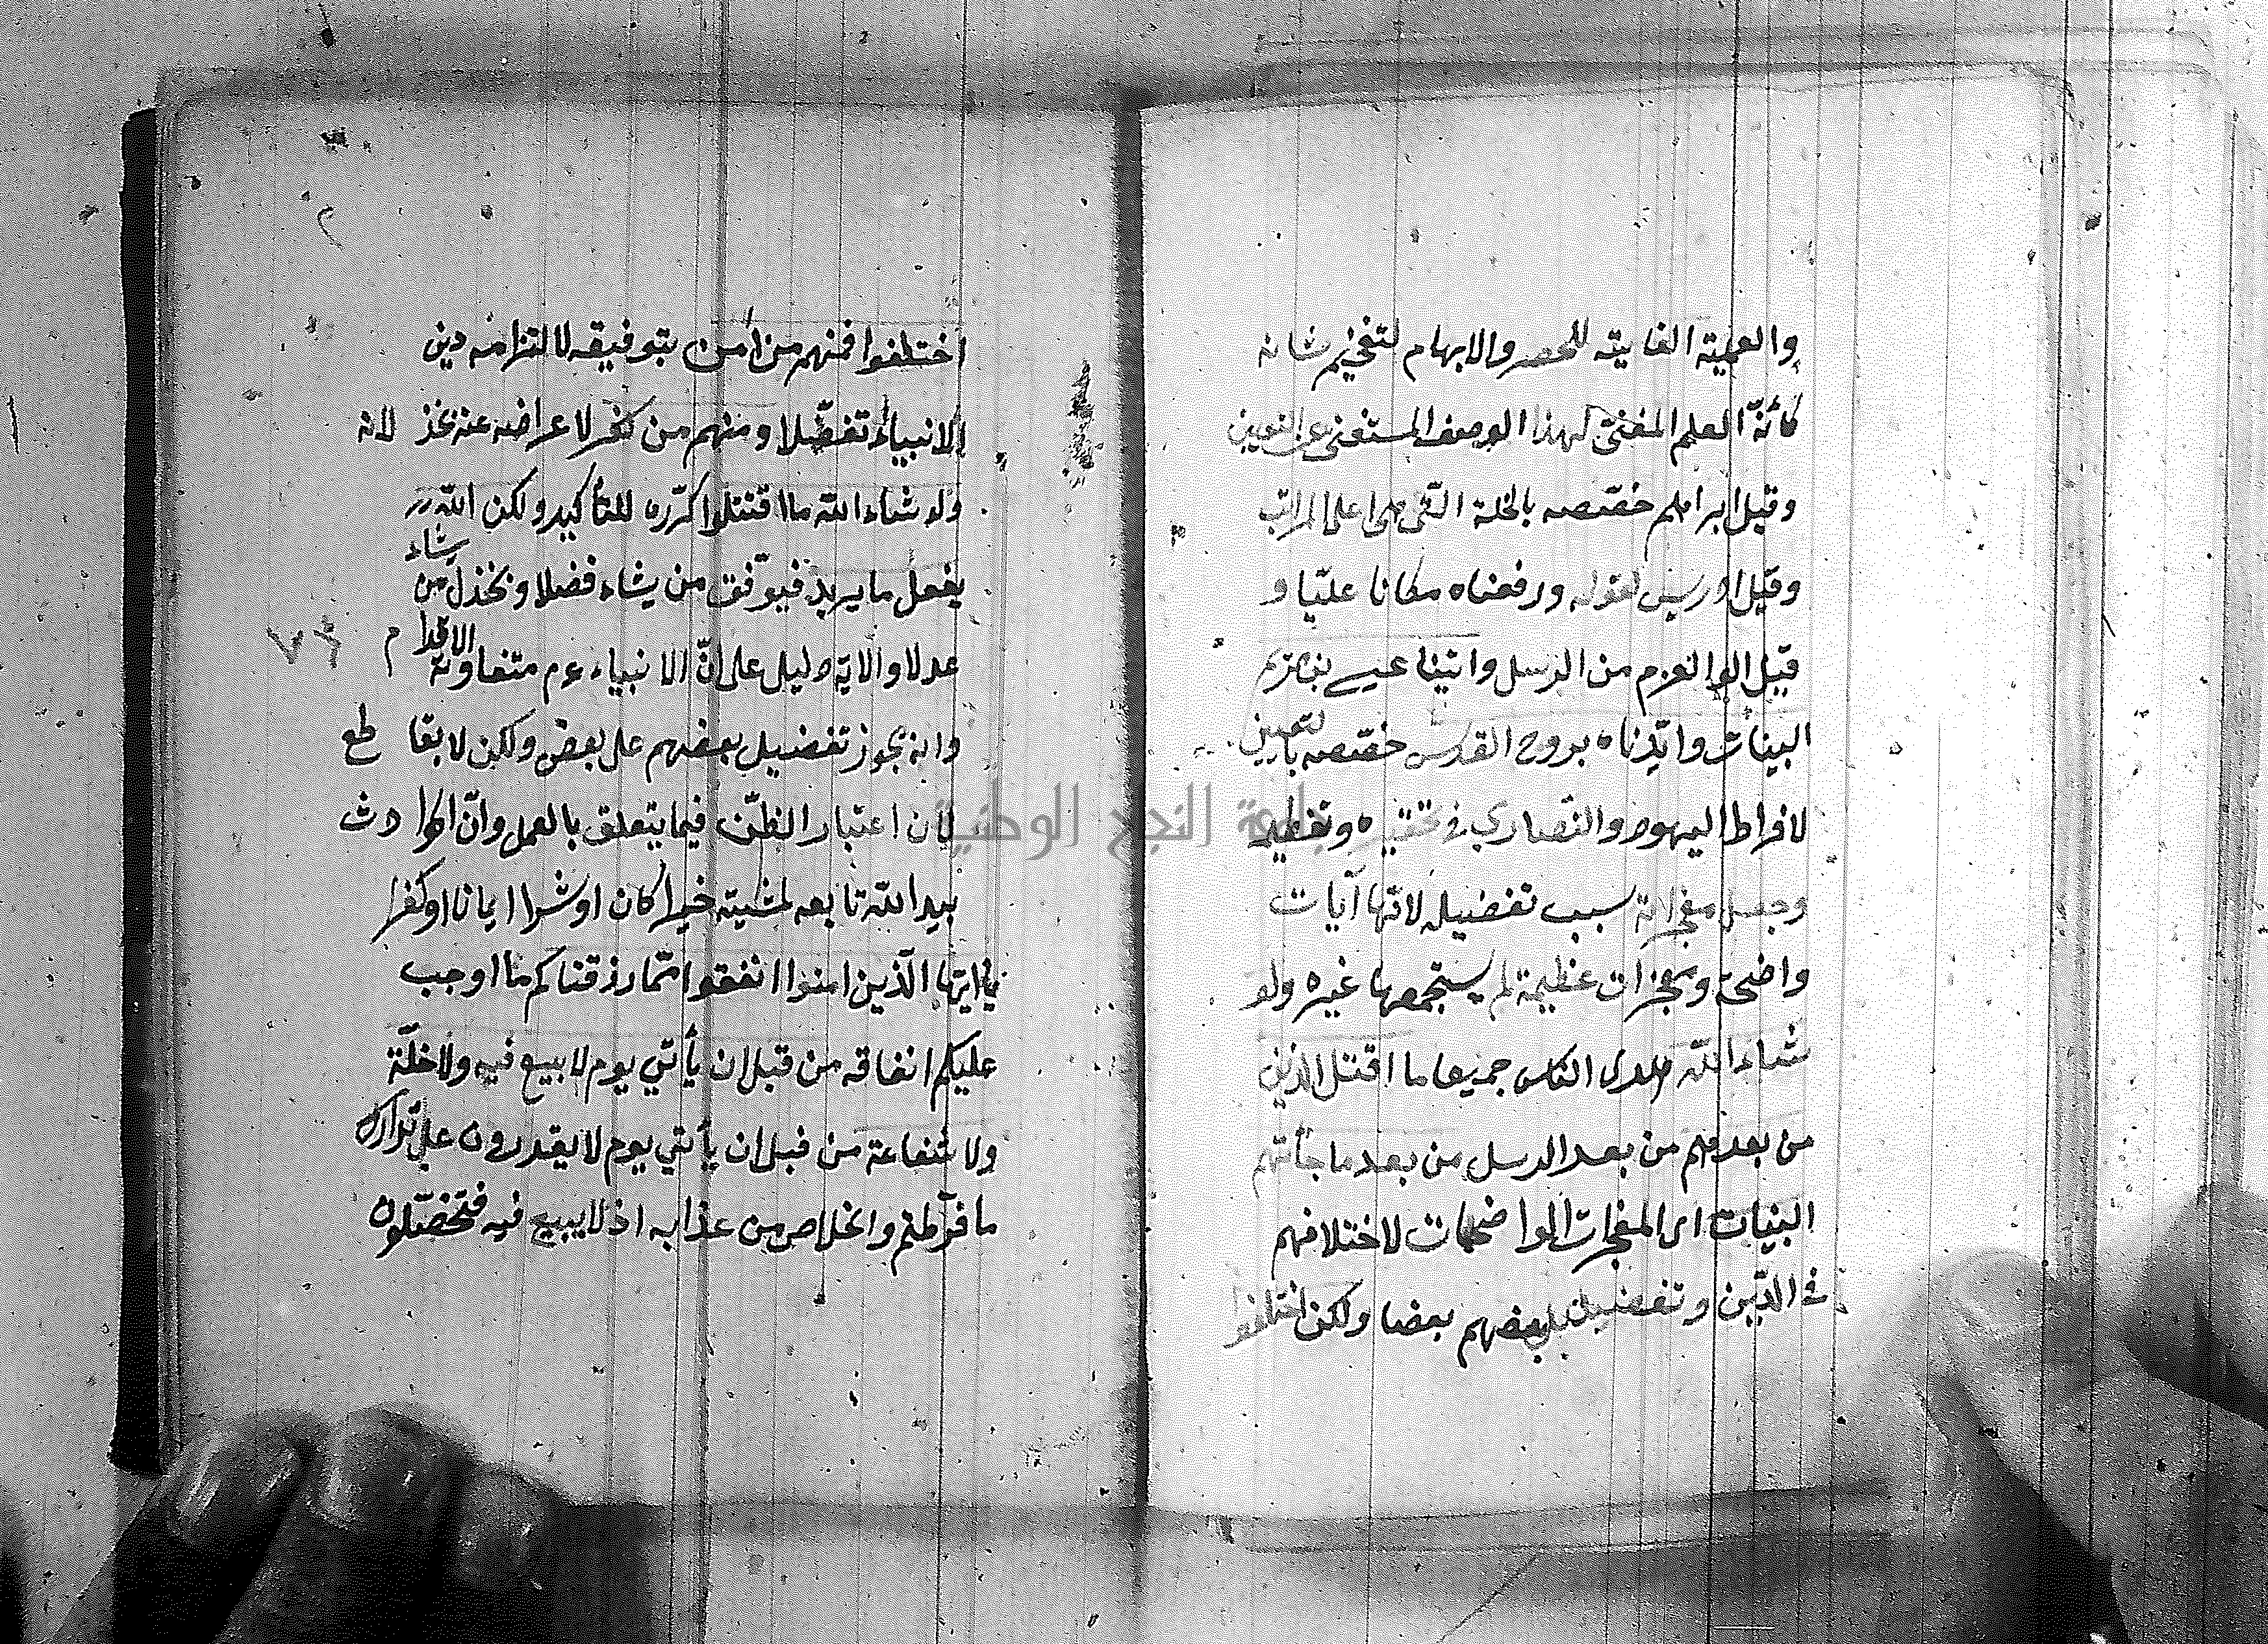 والعلمية الفايته للحصر والابهام لتفخيم شانه
كأنّه العلم المغنى لهذا الوصف المستغنى عن التعين
وقيل ابراهيم خصّصه بالخلة التى هى اعلى المراتب
وقيل ادريس لقوله ورفعناه مكانا عليّا و
قيل اولوا العزم من الرسل واتينا عيسى بن مريم
البينات وايّدناه بروح القدس خصّصه بالتعيين
لافراط اليهود والنّصارى فى تحقيره وتعظيمه
وجعل معجزاته سبب تفضيله لانّها آيات
واضحة ومعجزات عظيمة لم يستجمعها غيره ولو
شاء الله هدى الناس جميعا ما اقتتل الذين
من بعدهم من بعد الرسل من بعد ما جأتهم
البينات اى المعجزات الواضحات لاختلافهم
فى الدّين وتفضيل بعضهم بعضا ولكن اختلفوا
اختلفوا فمنهم من أمن بتوفيقه لالتزامه دين
الانبياء تفضّلا ومنهم من كفر لاعراضه عنه بخذلانه
ولو شاء الله ما اقتتلوا كرّره للتأكيد ولكن الله
يفعل ما يريد فيوّفق من يشاء فضلا ويخذل من يشاء
عدلا والاية دليل على انّ الانبياء عم متفاوتة الاقدام
٧٤
وانه يجوز تفضيل بعضهم على بعض ولكن لا بقاطع
لان اعتبار الظنّ فيما يتعلق بالعمل وانّ الحوادث
بيد الله تابعه لمشيته خيرا كان او شرا ايمانا او كفرا
يا ايّها الّذين امنوا انفقوا ممّا رزقناكم ما اوجب
عليكم انفاقه من قبل ان يأتي يوم لا بيع فيه ولا خلّة
ولا شفاعة من قبل ان يأتي يوم لا يقدرون على تدارك
ما فرّطتم والخلاص من عذابه اذ لا بيع فيه فتحصّلون
جامعة النجاح الوطنية